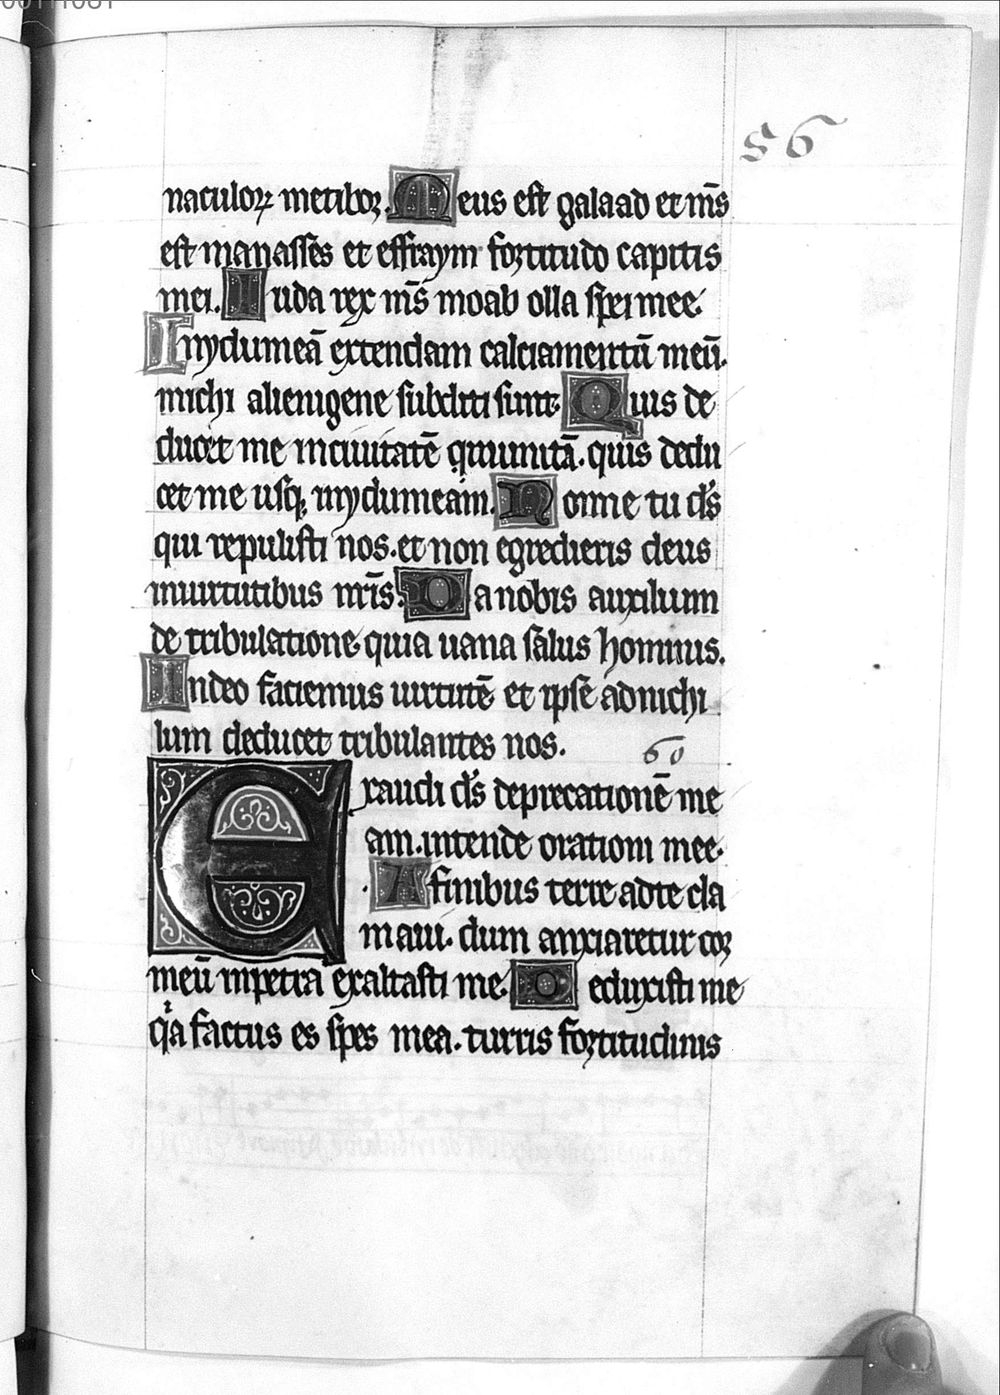 00111081
56
naculoꝝ metiboꝛ. Meus est galaad et mn̄s
est manasses et effraym fortitudo capitis
mei. Iuda rex mn̄s moab olla spei mee.
Inydumeā extendam calciamentū meū.
michi alienigene subditi sunt. Quis de
ducet me inciuitatē qmunitā. quis dedu
cet me usq; inydumeam. Nonne tu ds̄
qui repulisti nos. et non egredieris deus
inuirtutibus nr̄is. Da nobis auxilium
de tribulatione quia uana salus hominis.
Indeo faciemus uirtutē et ipse adnichi
lum deducet tribulantes nos.
60
Exaudi ds̄ deprecationē me
am. intende orationi mee.
A finibus terre adte cla
maui. dum anxiaretur cor
meū inpetra exaltasti me. Deduxisti me
qia factus es spes mea. turris fortitudinis